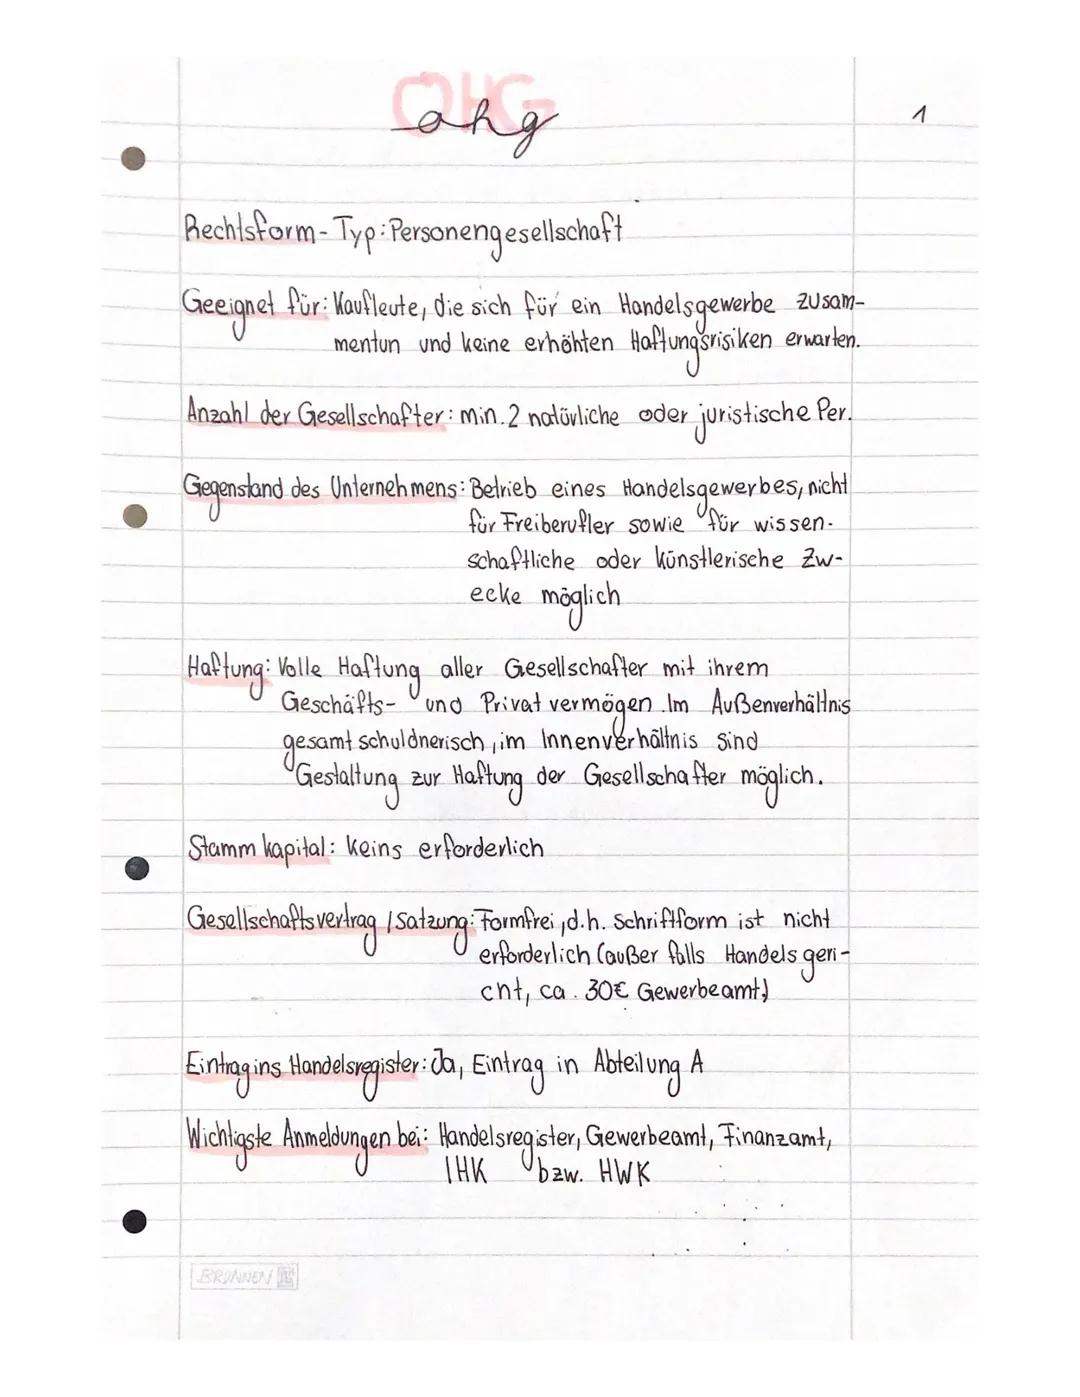 OHG
ohg
1
Rechtsform-Typ: Personengesellschaft
Geeignet für: Kaufleute, die sich für ein Handelsgewerbe zusam-
mentun und keine erhöhten Haftungsrisiken erwarten.
Anzahl der Gesellschafter: min. 2 natürliche oder juristische Per.
Gegenstand des Unternehmens: Betrieb eines Handelsgewerbes, nicht
für Freiberufler sowie für wissen-
schaftliche oder künstlerische Zw-
ecke möglich
Haftung: Volle Haftung aller Gesellschafter mit ihrem
Geschäfts- und Privatvermögen. Im Außenverhältnis
gesamtschuldnerisch, im Innenverhältnis sind
Gestaltung zur Haftung der Gesellschafter möglich.
Stammkapital: keins erforderlich
Gesellschaftsvertrag / Satzung: Formfrei, d.h. Schriftform ist nicht
erforderlich (außer falls Handelsgeri-
cht, ca. 30€ Gewerbeamt)
Eintrag ins Handelsregister: Ja, Eintrag in Abteilung A
Wichtigste Anmeldungen bei: Handelsregister, Gewerbeamt, Finanzamt,
IHK bzw. HWK
BRUNNEN